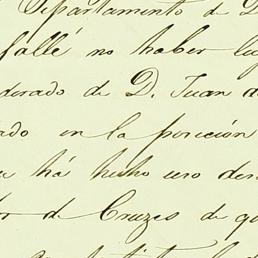 Departamento de
fallé no haber lu
derado de D. Juan d
ado en la posición
há hecho uno de
or de Cruzes de qu